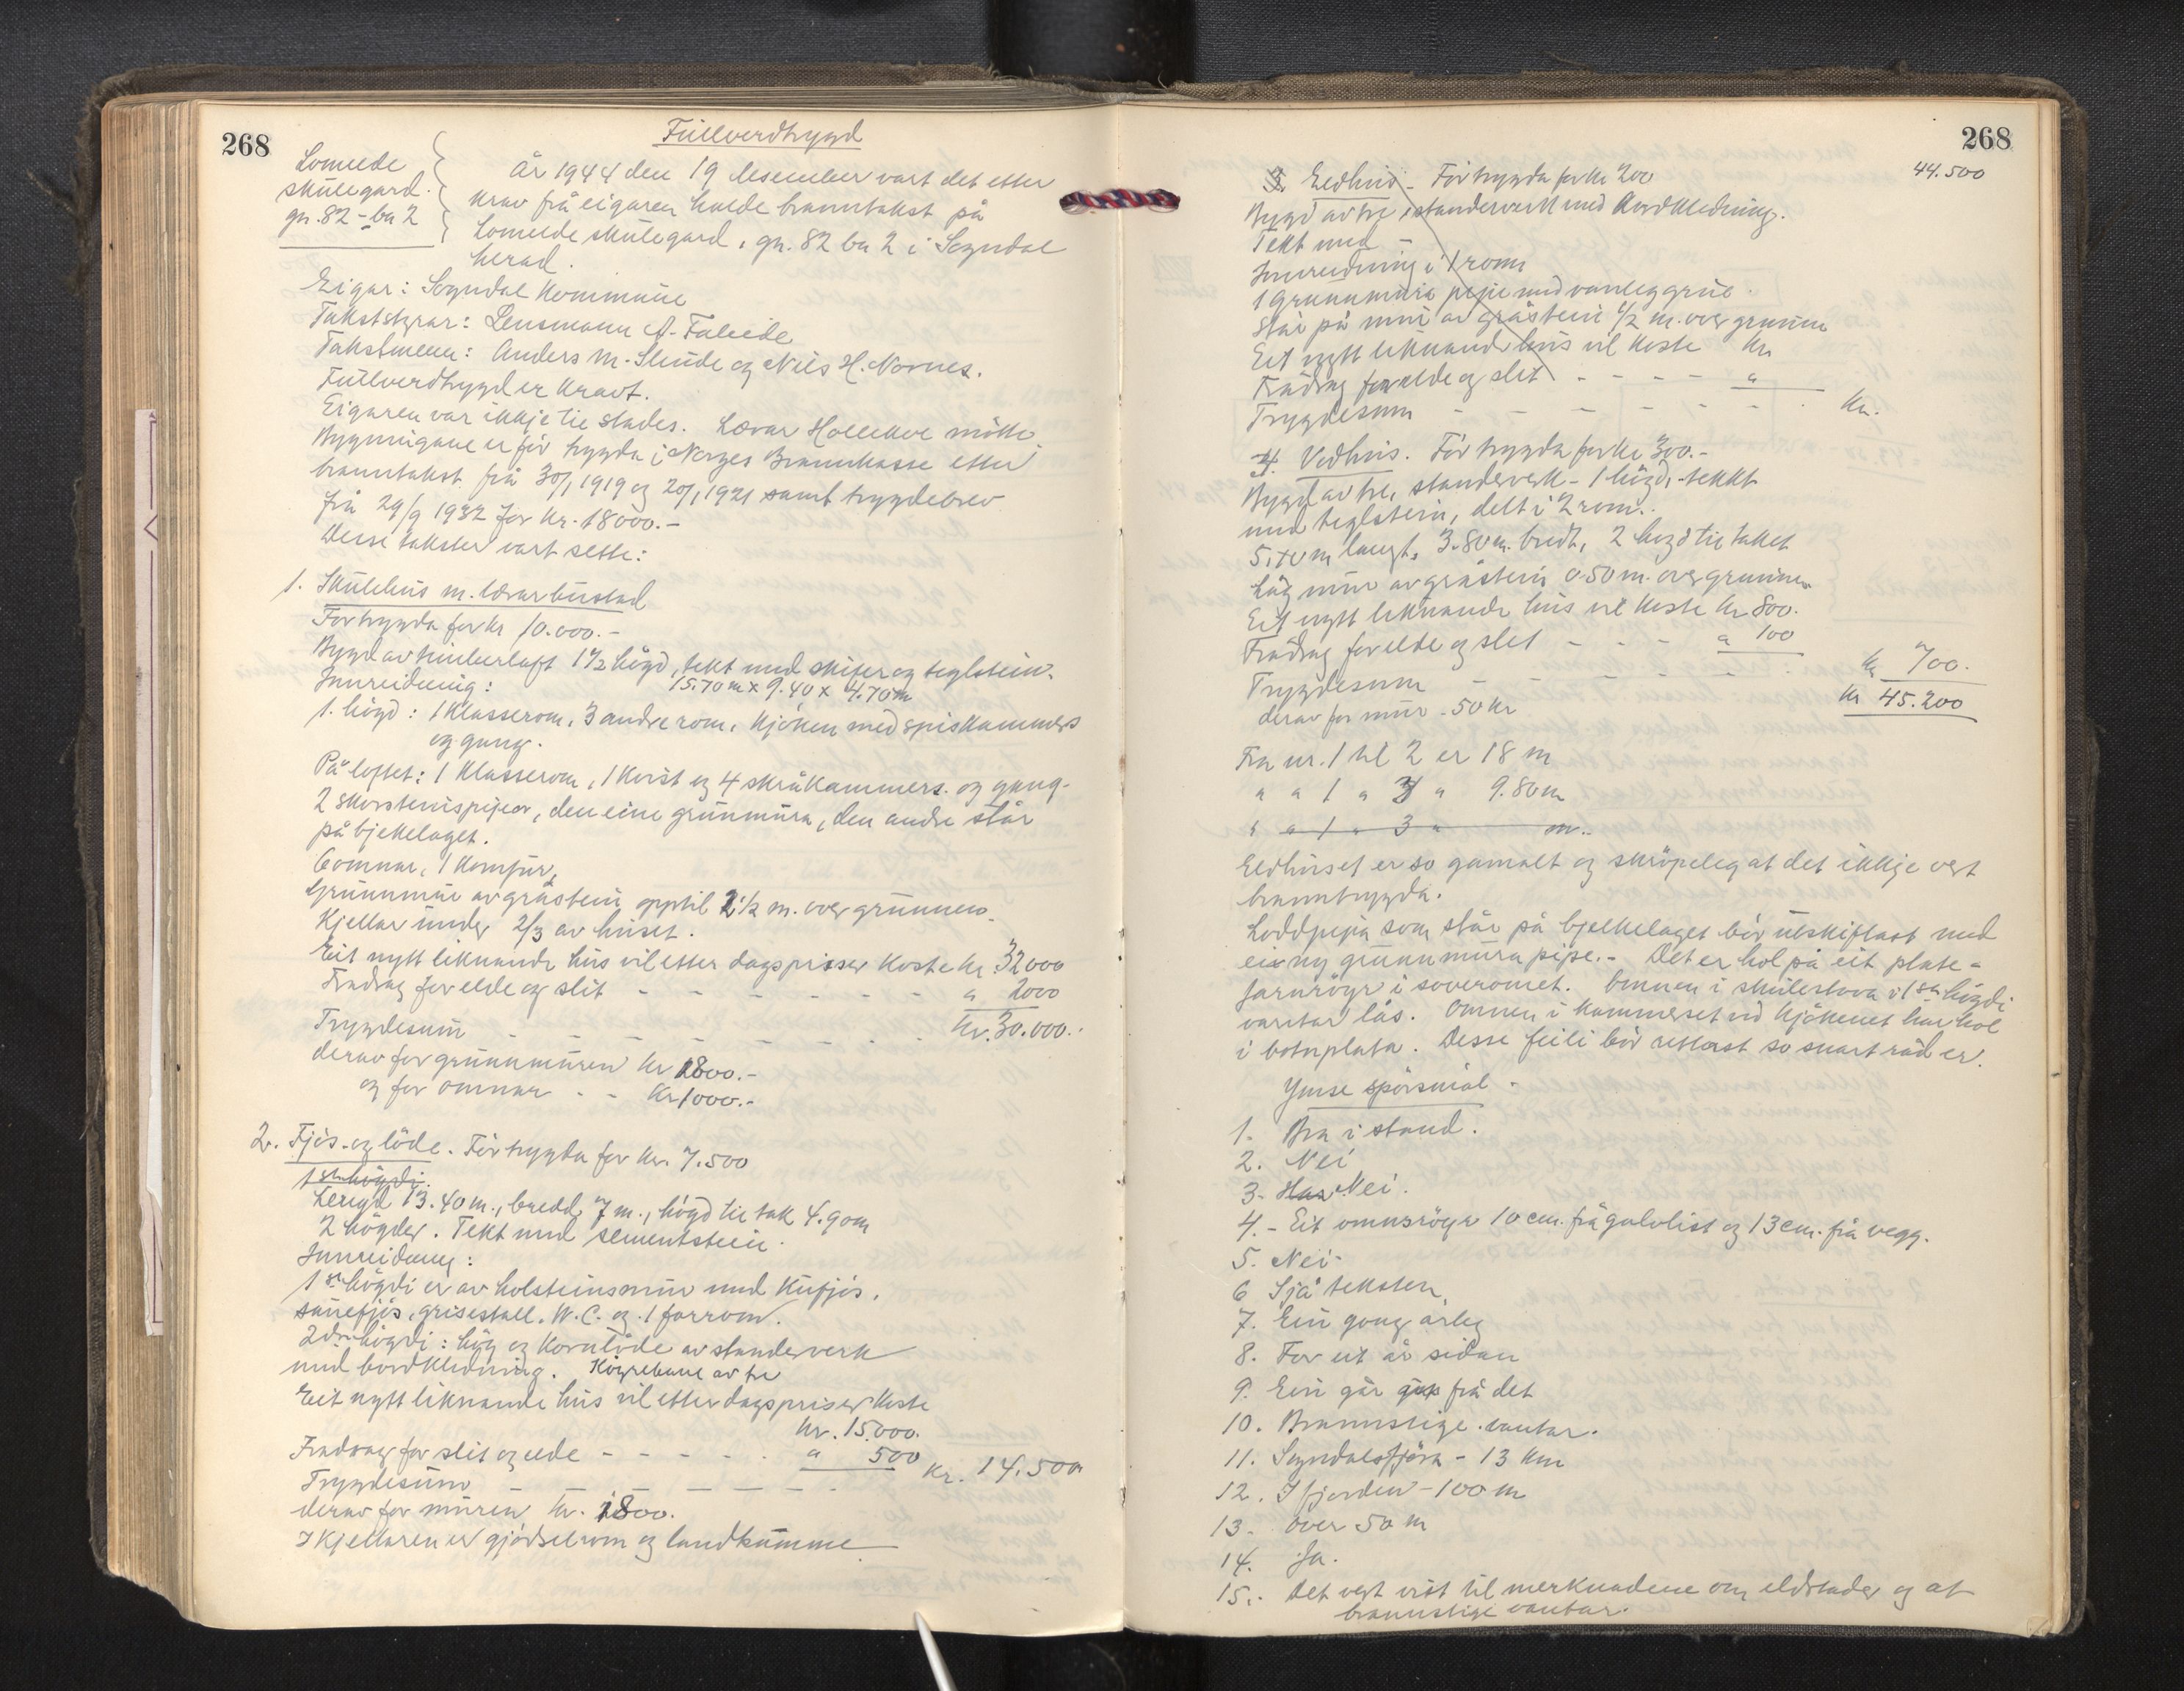 268
Fullverdtrygd
Lomelde
skulegard.
gn. 82 - bn 2
År 1944 den 19 desember vart det etter
krav frå eigaren halde branntakst på
Lomelde skulegard, gn. 82 bn 2 i Sogndal
herad.
Eigar: Sogndal kommune
Takststyrar: Lensmann A. Faleide
Takstmenn: Anders M. Slinde og Nils H. Nornes.
Fullverdtrygd er kravt.
Eigaren var ikkje til stades. Lærar Hollekve mötte.
Bygningane er för trygda i Norges Brannkasse etter
branntakst frå 30/1 1919 og 20/1 1921 samt trygdebrev
frå 29/9 1932 for kr. 18000.-
Desse takster vart sette:
1. Skulehus m. lærarbustad
För trygda for kr 10.000.-
Bygd av timberlaft 1½ högd, tekt med skifer og teglstein.
Innreidning: 15.70 m x 9.40 x 4.70 m
1. högd: 1 klasserom, 3 andre rom, kjöken med spiskammers
og gang.
På loftet: 1 klasserom, 1 kvist og 4 skråkammers og gang.
2 skorsteinspipor, den eine grunnmura, den andre står
på bjekelaget.
6 omnar, 1 komfur,
Grunnmur av gråstein opptil 2½ m. over grunnen.
Kjellar under 2/3 av huset.
Eit nytt liknande hus vil etter dagspriser koste kr. 32000
Frådrag for elde og slit - - - - - - " 2000
Trygdesum - - - - - - kr. 30.000.-
derav for grunnmuren kr 1800.-
og for omnar - - kr 1000.-
2. Fjös- og löde. För trygda for kr. 7.500
1ste högdi.
Lengd 13.40 m., bredd 7 m., högd til tak 4.90 m
2 högder. Tekt med sementstein.
Innreidning:
1ste högdi er av holsteinsmur med kufjös,
sauefjös, grisestall, W.C. og 1 forrom.
2dre högdi: höy og kornlöde av standerverk
med bordkledning. Köyrebane av tre
Eit nytt liknande hus vil etter dagspriser koste
kr. 15.000.
Frådrag for slit og elde - - - - - " 500
Trygdesum - - - - - - kr. 14.500
derav for muren kr. 1800.
I kjellaren er gjödselrom og landkumme
268
44.500
3. Eldhus - För trygda for kr 200
Bygd av tre, standerverk med bordkledning.
Tekt med -
Innreidning i 1 rom
1 grunnmura pipe med vanleg grue.
Står på mur av gråstein ½ m. over grunnen
Eit nytt liknande hus vil koste kr
Frådrag for elde og slit - - - - "
Trygdesum - - - - - - kr.
4. Vedhus. För trygda for kr 300.-
Bygd av tre, standerverk - 1 högd, tekkt
med teglstein, delt i 2 rom.
5.70 m langt, 3.80 m. bredt, 2 högd til taket
Låg mur av gråstein 0.50 m. over grunnen.
Eit nytt liknande hus vil koste kr 800.
Frådrag for elde og slit - - - " 100
Trygdesum - - - - - - kr 700.
derav for mur - 50 kr kr 45.200
Frå nr. 1 til 2 er 18 m
" " 1 " 3 " 9.80 m
" " 1 " 3 " m.
Eldhuset er so gamalt og skröpeleg at det ikkje vert
branntrygda.
Loddpipa som står på bjelkelaget bör utskiftast med
ei ny grunnmura pipe.- Det er hol på eit plate-
jarnröyr i soveromet. Omnen i skulestova i 1ste högdi
vantar lås. Omnen i kammerset ved kjökenet har hol
i botnplata. Desse feil bör rettast so snart råd er.
Ymse spörsmål -
1. Bra i stand.
2. Nei
3. Har Nei.
4. - Eit omnsröyr 10 cm. frå gulvlist og 13 cm. frå vegg.
5. Nei -
6 Sjå teksten,
7. Ein gong årleg
8. For eit år sidan
9. Ein går frå det
10. Brannstige vantar.
11. Sogndalsfjöra - 13 km
12. I fjorden - 100 m
13. over 50 m
14. Ja.
15. Det vert vist til merknadene om eldstader og at
brannstige vantar.